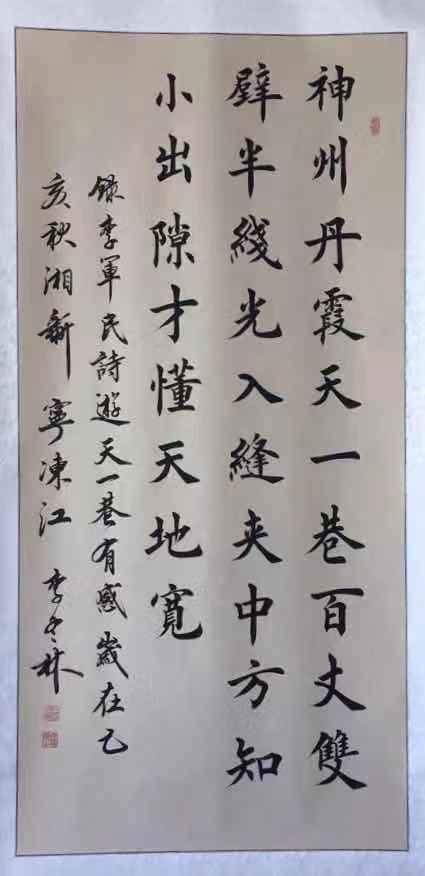 神州丹霞天一巷百丈雙
壁半綫光入縫夹中方知
小出隙才懂天地寬
錄李軍民詩遊天一巷有感歲在乙
亥秋湘新寧凍江 李冬林